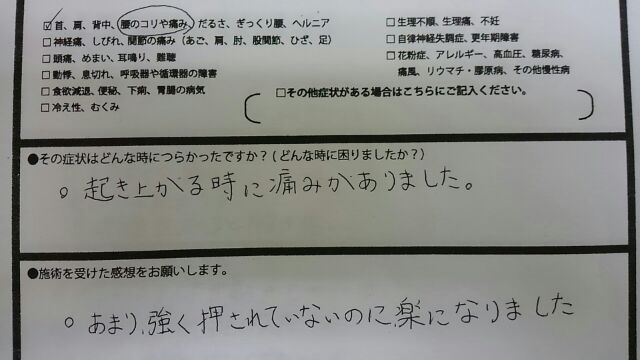 ☑首、肩、背中、腰のコリや痛み、だるさ、ぎっくり腰、ヘルニア
□神経痛、しびれ、関節の痛み（あご、肩、肘、股関節、ひざ、足）
□頭痛、めまい、耳鳴り、難聴
□動悸、息切れ、呼吸器や循環器の障害
□食欲減退、便秘、下痢、胃腸の病気
□冷え性、むくみ
□生理不順、生理痛、不妊
□自律神経失調症、更年期障害
□花粉症、アレルギー、高血圧、糖尿病、
痛風、リウマチ・膠原病、その他慢性病
□その他症状がある場合はこちらにご記入ください。
●その症状はどんな時につらかったですか？(どんな時に困りましたか？)
○ 起き上がる時に痛みがありました。
●施術を受けた感想をお願いします。
○ あまり、強く押されていないのに、楽になりました